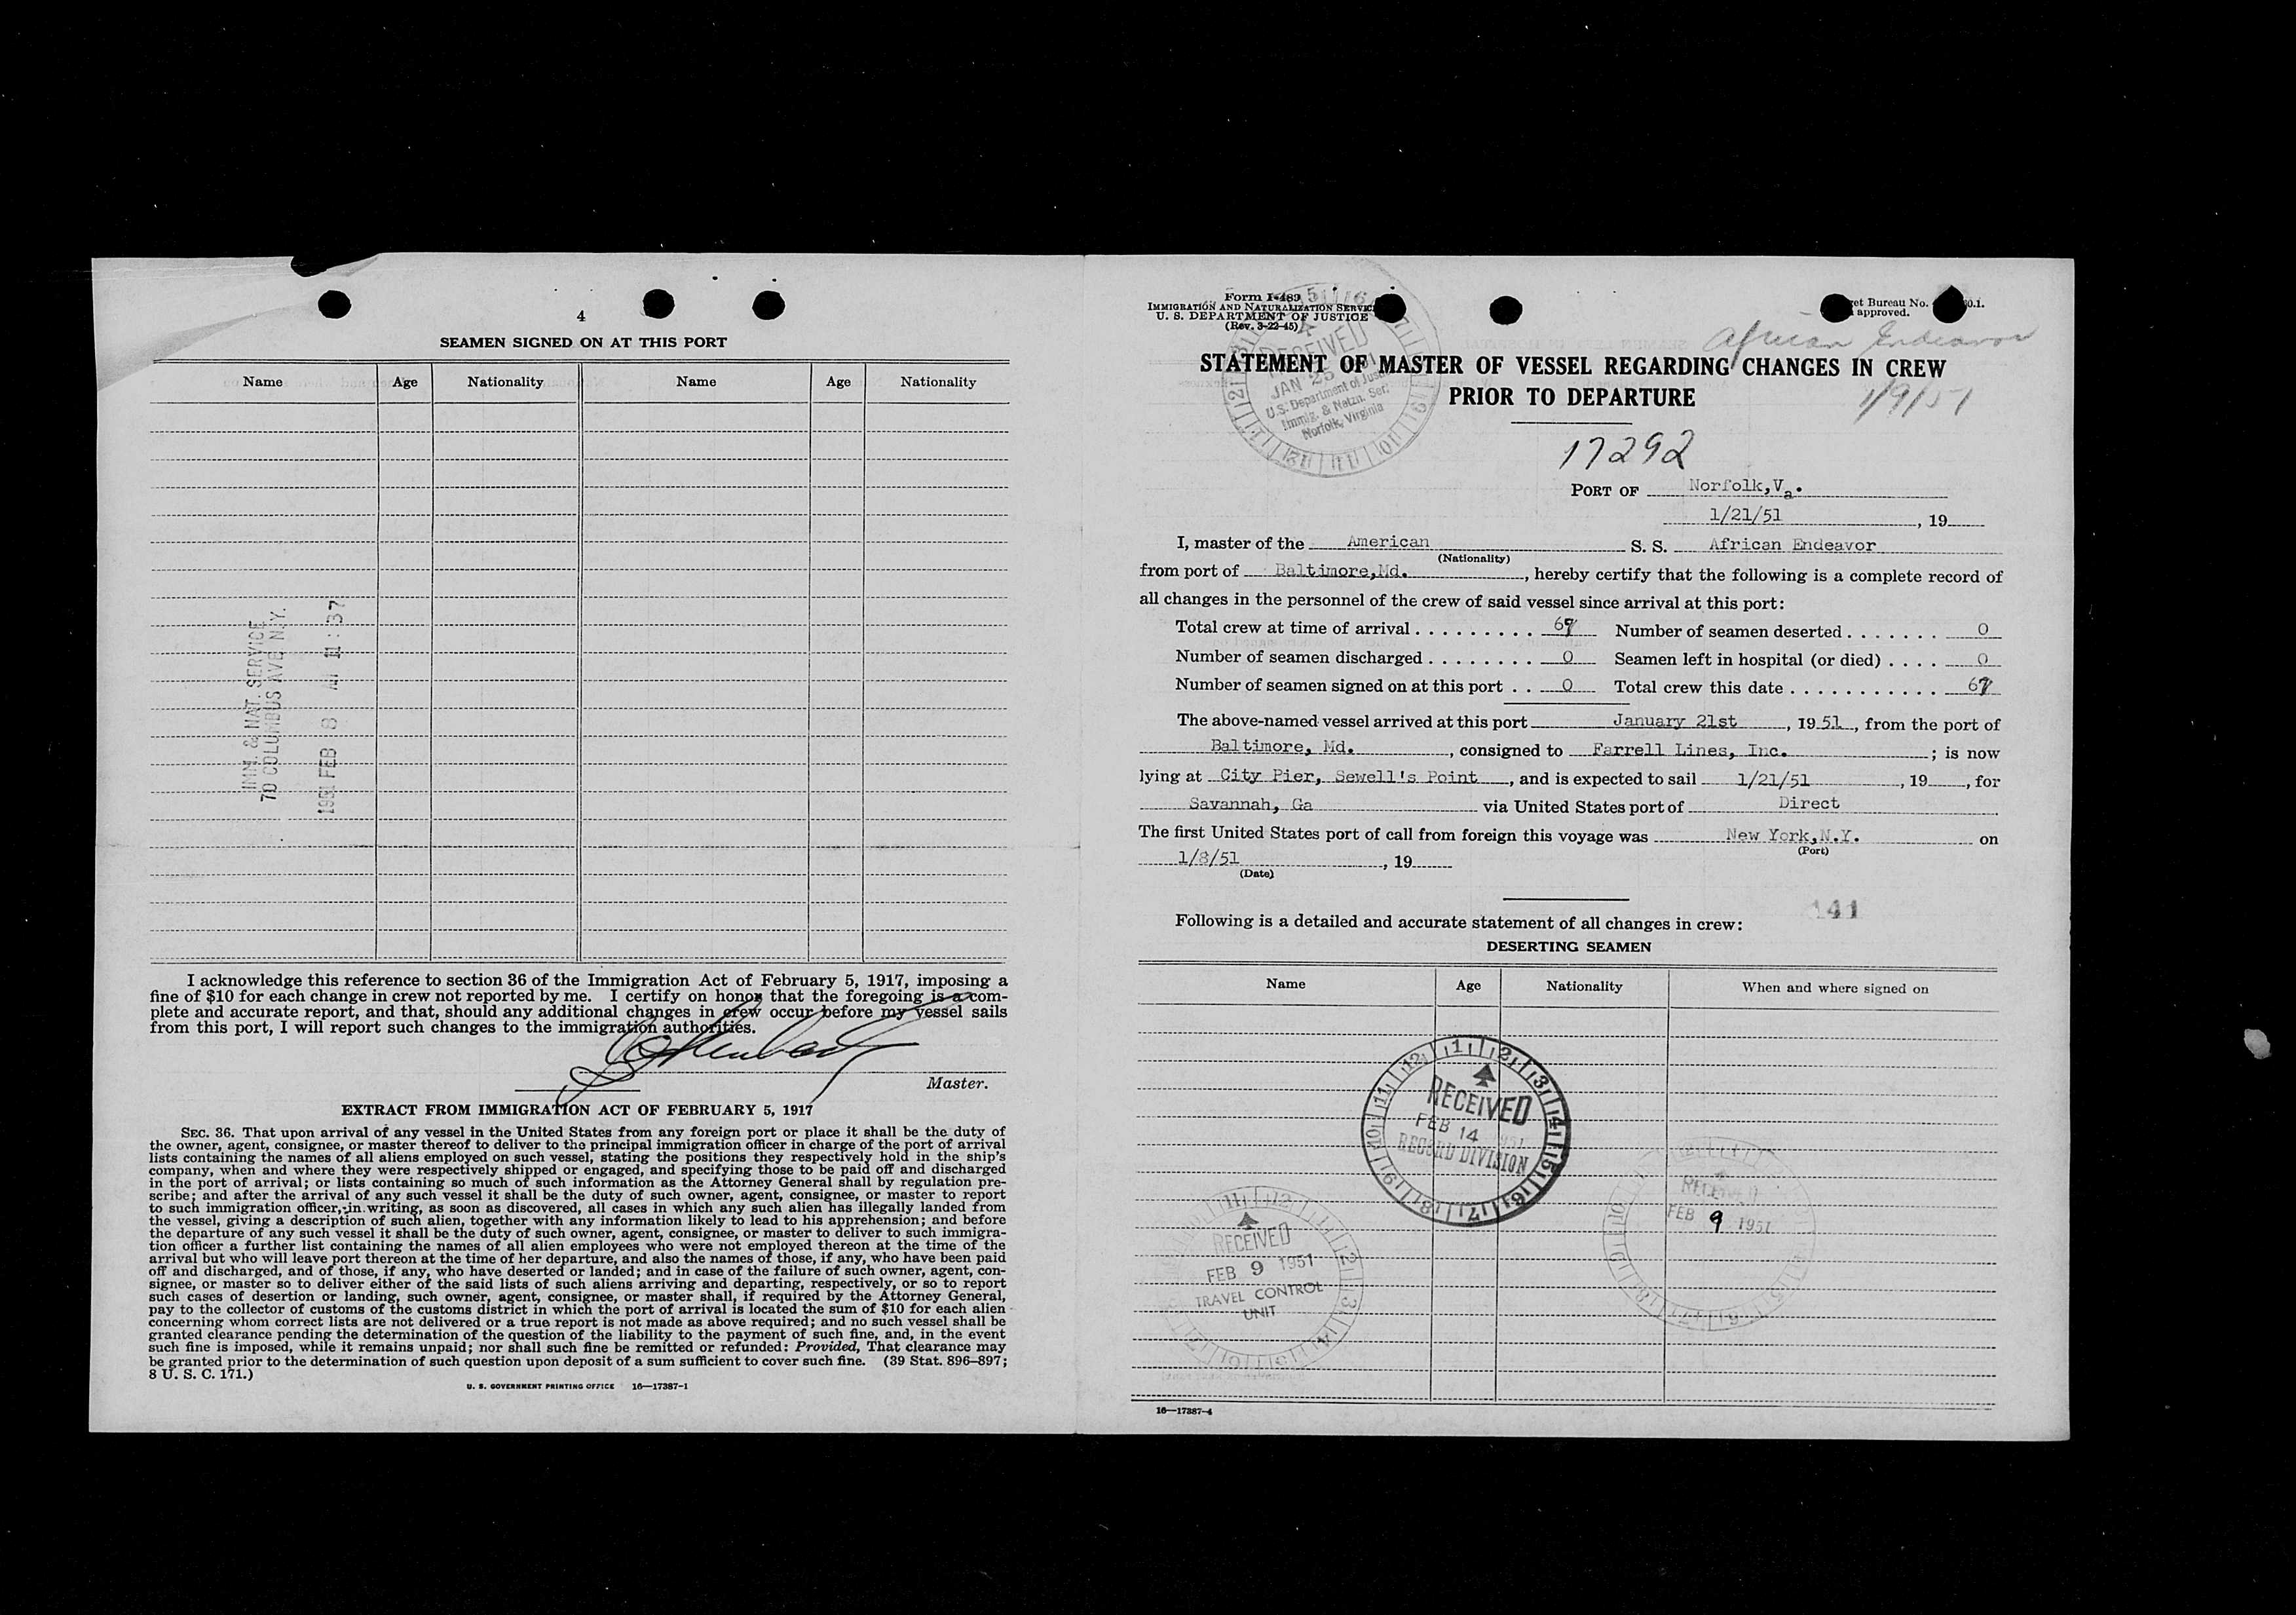 4
SEAMEN SIGNED ON AT THIS PORT
Name Age Nationality Name Age Nationality
IMM. & NAT. SERVICE
70 COLUMBUS AVE. N.Y.
1951 FEB 8 AM 11:37
I acknowledge this reference to section 36 of the Immigration Act of February 5, 1917, imposing a
fine of $10 for each change in crew not reported by me. I certify on honor that the foregoing is a com-
plete and accurate report, and that, should any additional changes in crew occur before my vessel sails
from this port, I will report such changes to the immigration authorities.
Master.
EXTRACT FROM IMMIGRATION ACT OF FEBRUARY 5, 1917
SEC. 36. That upon arrival of any vessel in the United States from any foreign port or place it shall be the duty of
the owner, agent, consignee, or master thereof to deliver to the principal immigration officer in charge of the port of arrival
lists containing the names of all aliens employed on such vessel, stating the positions they respectively hold in the ship's
company, when and where they were respectively shipped or engaged, and specifying those to be paid off and discharged
in the port of arrival; or lists containing so much of such information as the Attorney General shall by regulation pre-
scribe; and after the arrival of any such vessel it shall be the duty of such owner, agent, consignee, or master to report
to such immigration officer, in writing, as soon as discovered, all cases in which any such alien has illegally landed from
the vessel, giving a description of such alien, together with any information likely to lead to his apprehension; and before
the departure of any such vessel it shall be the duty of such owner, agent, consignee, or master to deliver to such immigra-
tion officer a further list containing the names of all alien employees who were not employed thereon at the time of the
arrival but who will leave port thereon at the time of her departure, and also the names of those, if any, who have been paid
off and discharged, and of those, if any, who have deserted or landed; and in case of the failure of such owner, agent, con-
signee, or master so to deliver either of the said lists of such aliens arriving and departing, respectively, or so to report
such cases of desertion or landing, such owner, agent, consignee, or master shall, if required by the Attorney General,
pay to the collector of customs of the customs district in which the port of arrival is located the sum of $10 for each alien
concerning whom correct lists are not delivered or a true report is not made as above required; and no such vessel shall be
granted clearance pending the determination of the question of the liability to the payment of such fine, and, in the event
such fine is imposed, while it remains unpaid; nor shall such fine be remitted or refunded: Provided, That clearance may
be granted prior to the determination of such question upon deposit of a sum sufficient to cover such fine. (39 Stat. 896–897;
8 U. S. C. 171.)
U. S. GOVERNMENT PRINTING OFFICE 16—17387-1
Form I-489
IMMIGRATION AND NATURALIZATION SERVICE
U. S. DEPARTMENT OF JUSTICE
(Rev. 3-22-45)
Bureau No.
approved.
African Endeavor
STATEMENT OF MASTER OF VESSEL REGARDING CHANGES IN CREW
PRIOR TO DEPARTURE
1/9/51
RECEIVED
JAN 25
U.S. Department of Justice
Immig. & Natzn. Ser.
Norfolk, Virginia
17292
PORT OF Norfolk,Va.
1/21/51 , 19
I, master of the American S. S. African Endeavor
(Nationality)
from port of Baltimore,Md. , hereby certify that the following is a complete record of
all changes in the personnel of the crew of said vessel since arrival at this port:
Total crew at time of arrival . . . . . . . . . Number of seamen deserted . . . . . . . 0
Number of seamen discharged . . . . . . . . 0 Seamen left in hospital (or died) . . . . 0
Number of seamen signed on at this port . . 0 Total crew this date . . . . . . . . . . .
The above-named vessel arrived at this port January 21st , 19 51 , from the port of
Baltimore, Md. , consigned to Farrell Lines, Inc. ; is now
lying at City Pier, Sewell's Point , and is expected to sail 1/21/51 , 19 , for
Savannah, Ga via United States port of Direct
The first United States port of call from foreign this voyage was New York,N.Y. on
(Port)
1/8/51 , 19
(Date)
141
Following is a detailed and accurate statement of all changes in crew:
DESERTING SEAMEN
Name Age Nationality When and where signed on
RECEIVED
FEB 14 1951
RECORD DIVISION
RECEIVED
FEB 9 1951
TRAVEL CONTROL
UNIT
RECEIVED
FEB 9 1951
16—17387-4